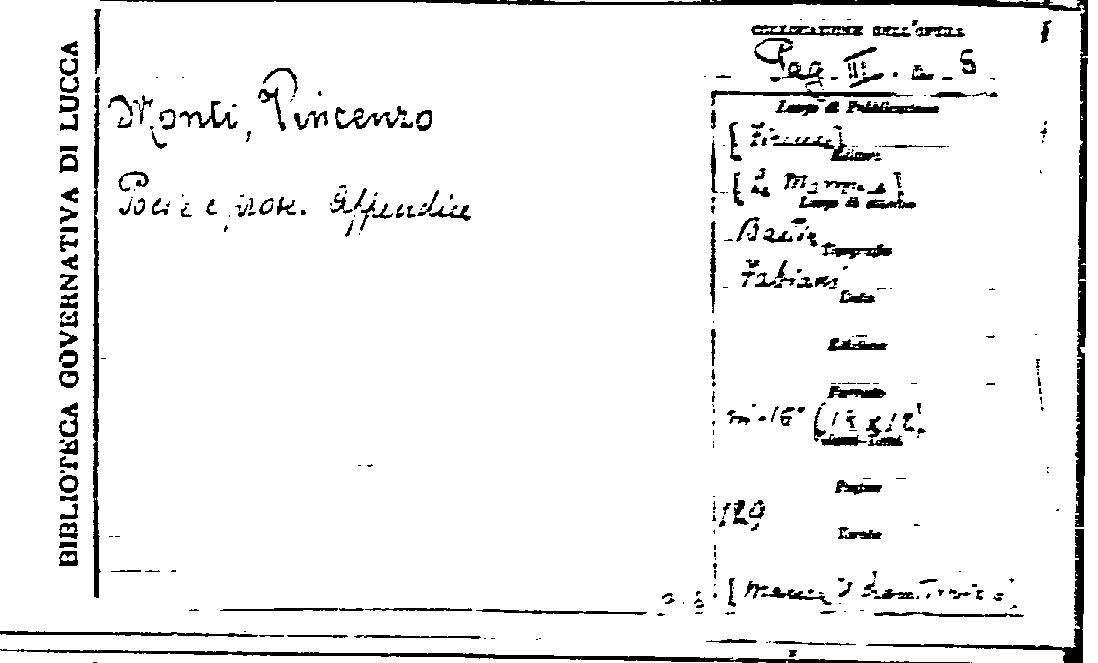 BIBLIOTECA GOVERNATIVA DI LUCCA
Monti, Vincenzo
Poesie e prose. Appendice
COLLOCAZIONE DELL'OPERA
Pag. III. a. 5
Luogo di Pubblicazione
[Firenze]
Editore
Luogo di stampa
Tipografo
Fabiani
Data
Edizione
Formato
in-16° (18 x 12)
Pagine
129
[manca il frontespizio]